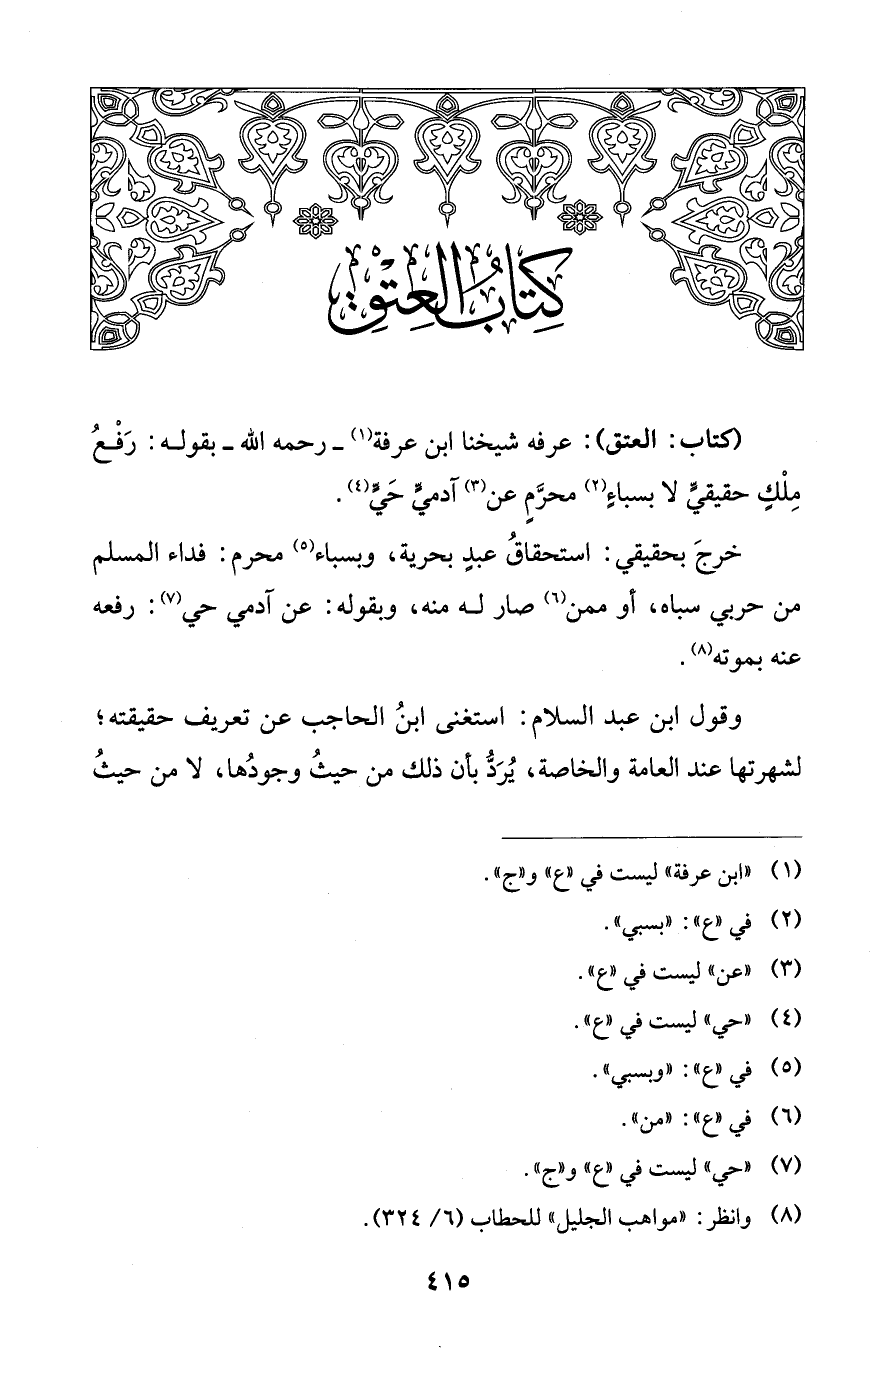 كِتابُ العِتقِ
(كتاب: العتق): عرفه شيخنا ابن عرفة(١) ـ رحمه الله ـ بقوله: رَفْعُ
مِلْكٍ حقيقيٍّ لا بسباءٍ(٢) محرَّمٍ عن(٣) آدميٍّ حَيٍّ(٤).
خرجَ بحقيقي: استحقاقُ عبدٍ بحرية، وبسباء(٥) محرم: فداء المسلم
من حربي سباه، أو ممن(٦) صار له منه، وبقوله: عن آدمي حي(٧): رفعه
عنه بموته(٨).
وقول ابن عبد السلام: استغنى ابنُ الحاجب عن تعريف حقيقته؛
لشهرتها عند العامة والخاصة، يُرَدُّ بأن ذلك من حيثُ وجودُها، لا من حيثُ
(١) «ابن عرفة» ليست في «ع» و«ج».
(٢) في «ع»: «بسبي».
(٣) «عن» ليست في «ع».
(٤) «حي» ليست في «ع».
(٥) في «ع»: «وبسبي».
(٦) في «ع»: «من».
(٧) «حي» ليست في «ع» و«ج».
(٨) وانظر: «مواهب الجليل» للحطاب (٦/ ٣٢٤).
٤١٥